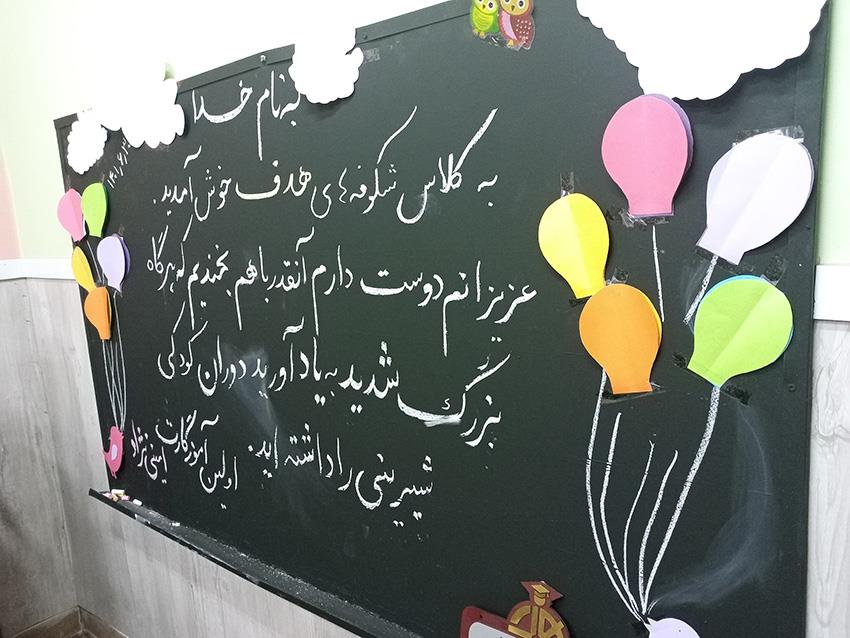 به نام خدا
به کلاس شکوفه‌های هدف خوش آمدید.
عزیزانم دوست دارم آنقدر باهم بخندیم که هرگاه
بزرگ شدید به یاد آورید دوران کودکی
شیرینی را داشته اید. اولین آموزگارت امینی نژاد